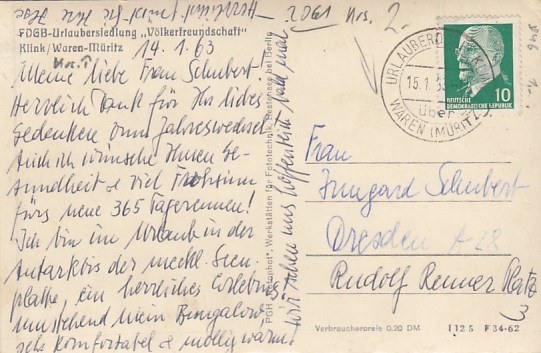 FDGB-Urlaubersiedlung „Völkerfreundschaft"
Klink/Waren-Müritz
14.1.63
Meine liebe Frau Schubert
Herzlich Dank für Ihr liebes
Gedenken zum Jahreswechsel
Auch ich wünsche Ihnen Ge-
sundheit & viel Frohsinn
fürs neue 365 Tagerennen!
Ich bin im Urlaub in der
Antarktis der meckl. Seen-
platte, ein herrliches Erlebnis
umstehend mein Bungalow
sehr komfortabel & mollig warm!
wir sehen uns hoffentlich bald mal
2061
Nrs. 2.
PGH „Fotothot", Werkstätten für Fototechnik, Bestensee bei Berlin
15.1.63
Über
WAREN (MÜRITZ)
10
DEUTSCHE
DEMOKRATISCHE REPUBLIK
Frau
Irmgard Schubert
Dresden A-28
Rudolf Renner Platz
3
Verbraucherpreis 0,20 DM
I 12 S F 34-62